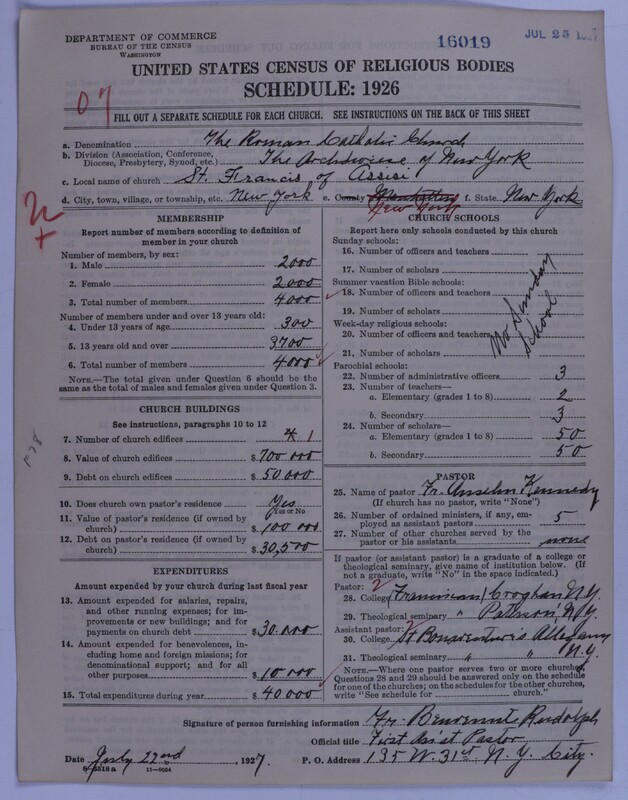 DEPARTMENT OF COMMERCE
BUREAU OF THE CENSUS
WASHINGTON
16019
JUL 25 1927
UNITED STATES CENSUS OF RELIGIOUS BODIES
SCHEDULE: 1926
07
FILL OUT A SEPARATE SCHEDULE FOR EACH CHURCH. SEE INSTRUCTIONS ON THE BACK OF THIS SHEET
a. Denomination The Roman Catholic Church
b. Division (Association, Conference, Diocese, Presbytery, Synod, etc.) The Archdiocese of New York
c. Local name of church St. Francis of Assisi
d. City, town, village, or township, etc. New York e. County Manhattan New York f. State New York
MEMBERSHIP
Report number of members according to definition of
member in your church
Number of members, by sex:
1. Male 2000
2. Female 2000
3. Total number of members 4000
Number of members under and over 13 years old:
4. Under 13 years of age 300
5. 13 years old and over 3700
6. Total number of members 4000
NOTE.—The total given under Question 6 should be
same as the total of males and females given under Question 3.
CHURCH BUILDINGS
See instructions, paragraphs 10 to 12
7. Number of church edifices 1
8. Value of church edifices $700 000
9. Debt on church edifices $50 000
10. Does church own pastor's residence Yes
Yes or No
11. Value of pastor's residence (if owned by
church) $100 000
12. Debt on pastor's residence (if owned by
church) $30,500
EXPENDITURES
Amount expended by your church during last fiscal year
13. Amount expended for salaries, repairs,
and other running expenses; for im-
provements or new buildings; and for
payments on church debt $30.000
14. Amount expended for benevolences,
including home and foreign missions; for
denominational support; and for all
other purposes $10 000
15. Total expenditures during year $40 000
CHURCH SCHOOLS
Report here only schools conducted by this church
Sunday schools:
16. Number of officers and teachers
17. Number of scholars
Summer vacation Bible schools:
18. Number of officers and teachers
19. Number of scholars
Week-day religious schools:
20. Number of officers and teachers
21. Number of scholars
No Sunday
School
Parochial schools:
22. Number of administrative officers 3
23. Number of teachers—
a. Elementary (grades 1 to 8) 2
b. Secondary 3
24. Number of scholars—
a. Elementary (grades 1 to 8) 50
b. Secondary 50
PASTOR
25. Name of pastor Fr. Anselm Kennedy
(If church has no pastor, write "None")
26. Number of ordained ministers, if any, em-
ployed as assistant pastors 5
27. Number of other churches served by the
pastor or his assistants none
If pastor (or assistant pastor) is a graduate of a college or
theological seminary, give name of institution below. (If
not a graduate, write "No" in the space indicated.)
Pastor:
28. College Franciscan Croghan N.Y.
29. Theological seminary " Paterson, N.Y.
Assistant pastor:
30. College St Bonaventure's Allegany
31. Theological seminary " " N.Y.
NOTE.—Where one pastor serves two or more churches,
Questions 28 and 29 should be answered only on the schedule
for one of the churches; on the schedules for the other churches,
write "See schedule for church."
Signature of person furnishing information Fr. Benvenute Rudolph
Official title First Ass't Pastor
Date July 22nd, 1927. P. O. Address 135 W. 31st N. Y. City.
8-5518a 11-9054